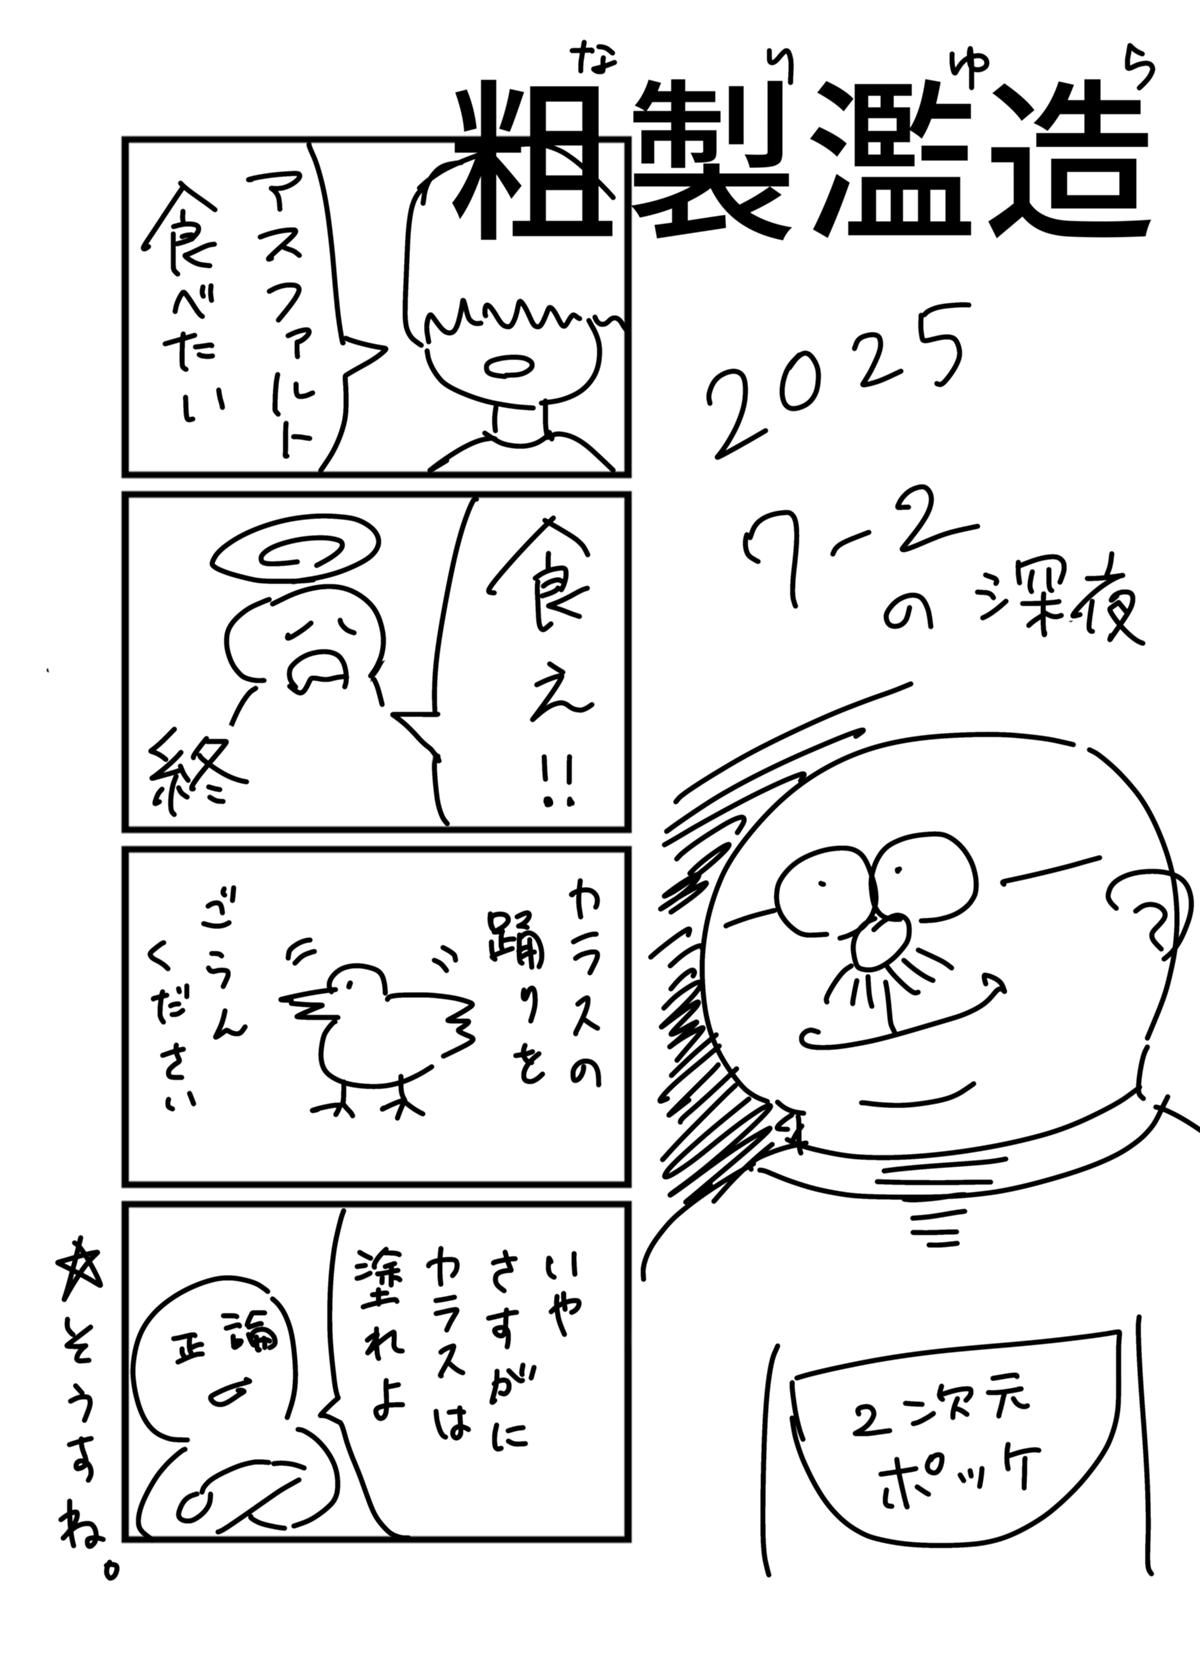 なりゆら
粗製濫造
2025
7-2
の深夜
アスファルト
食べたい
食え!!
終
カラスの
踊りを
ごらん
ください
いや
さすがに
カラスは
塗れよ
正論
☆そうすね。
2次元
ポッケ